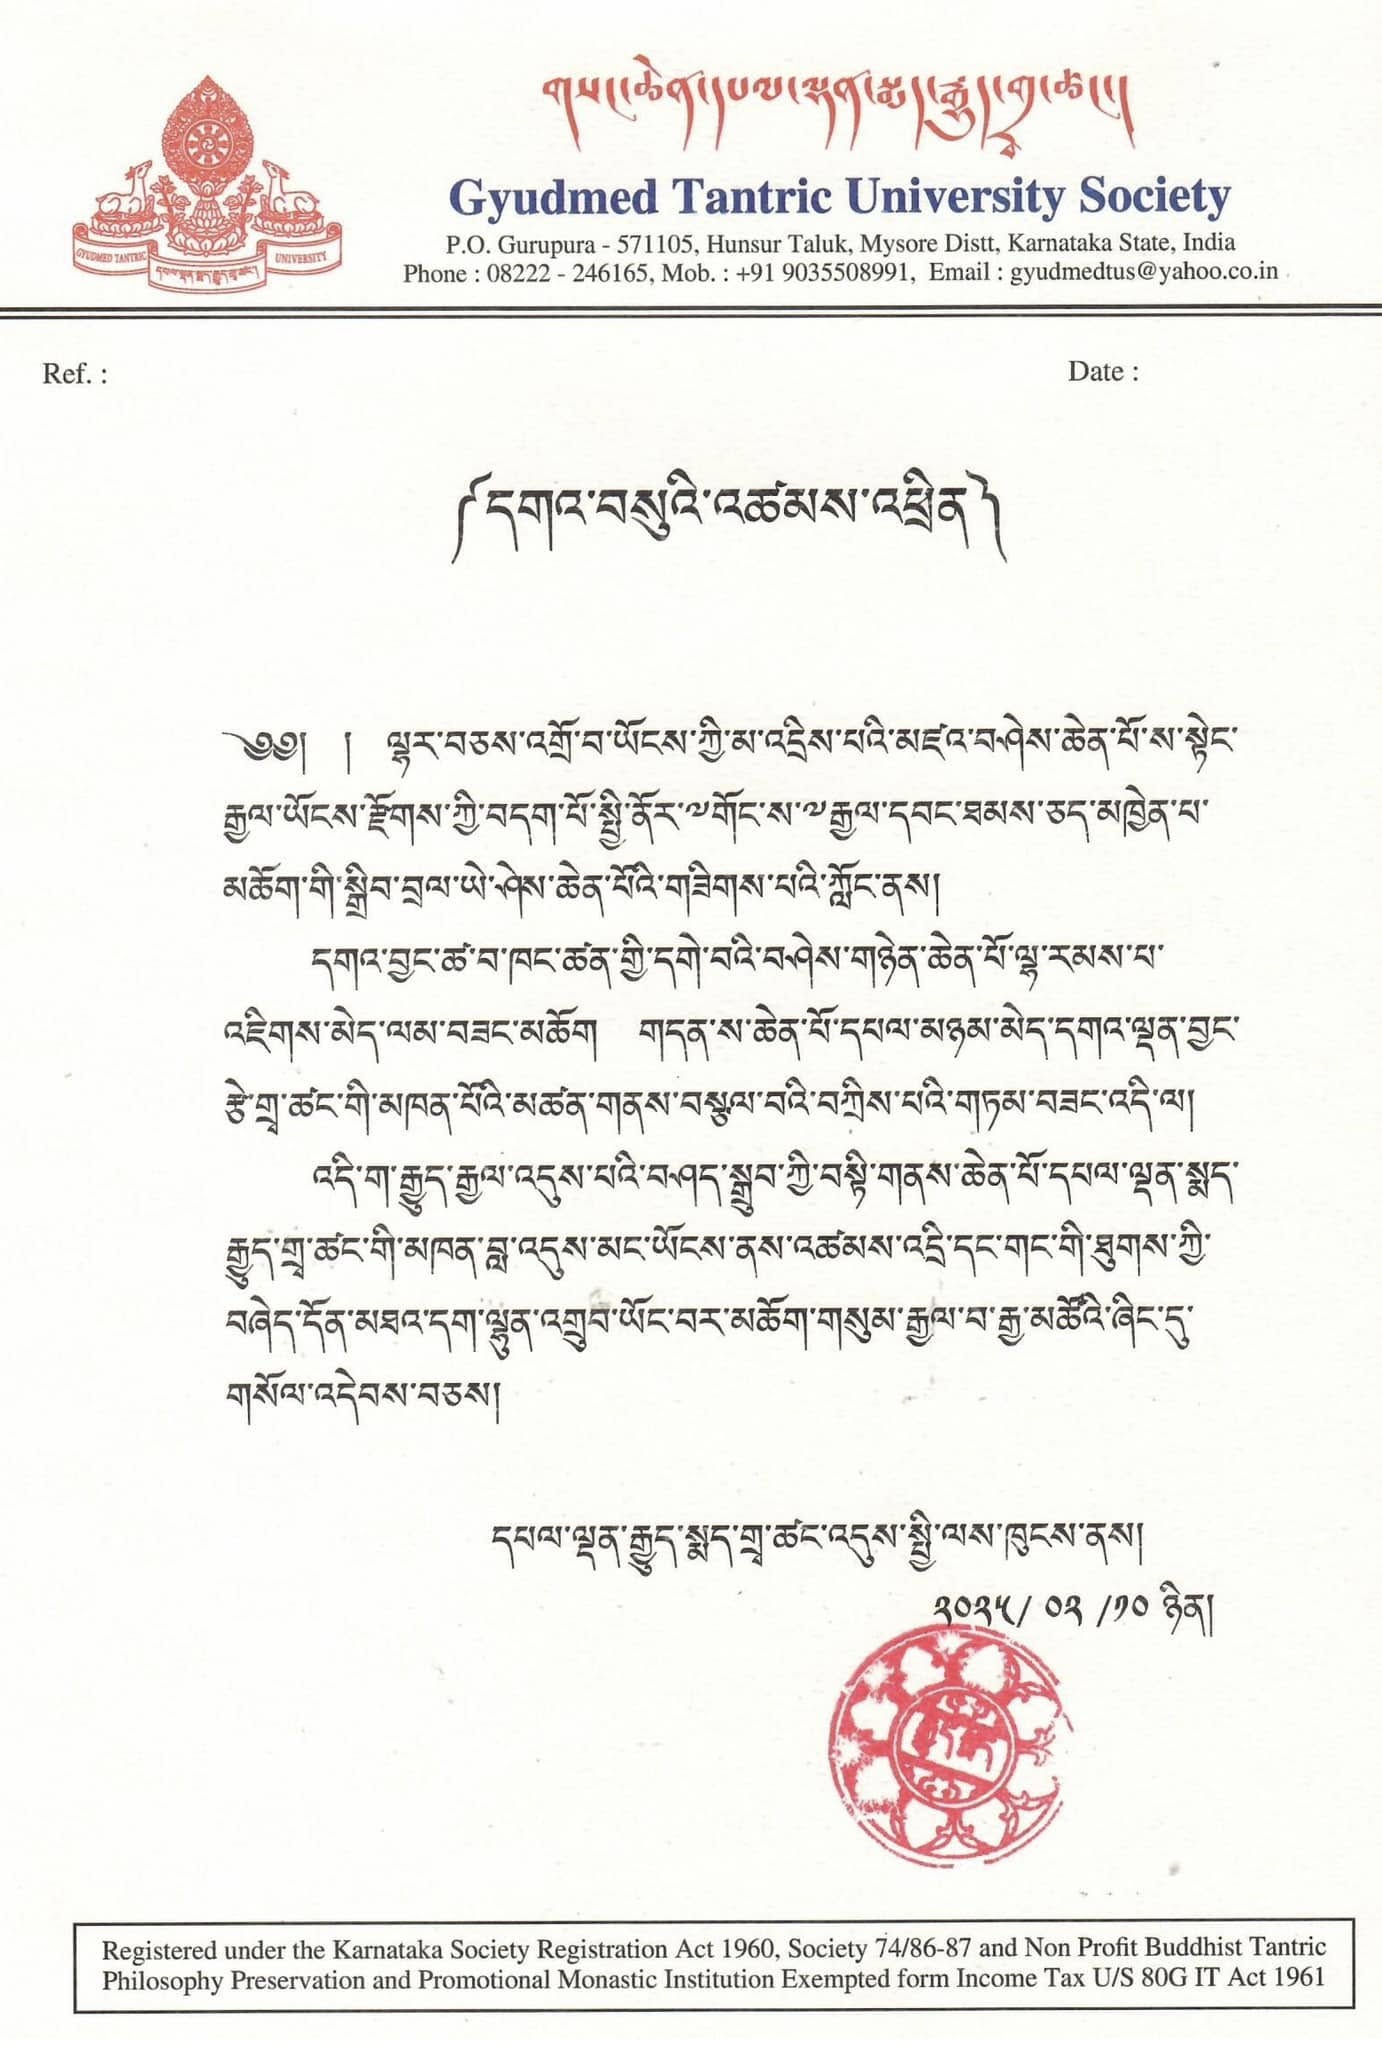 གསང་ཆེན་དཔལ་ལྡན་སྨད་རྒྱུད་གྲྭ་ཚང་།
Gyudmed Tantric University Society
P.O. Gurupura - 571105, Hunsur Taluk, Mysore Distt, Karnataka State, India
Phone : 08222 - 246165, Mob. : +91 9035508991, Email : gyudmedtus@yahoo.co.in
GYUDMED TANTRIC UNIVERSITY
དཔལ་ལྡན་སྨད་རྒྱུད་གྲྭ་ཚང་།
Ref. :
Date :
༼དགའ་བསུའི་འཚམས་འཕྲིན༽
༄༅། །ལྷར་བཅས་འགྲོ་བ་ཡོངས་ཀྱི་མ་འདྲིས་པའི་མཛའ་བཤེས་ཆེན་པོ་ས་སྟེང་
རྒྱལ་ཡོངས་རྫོགས་ཀྱི་བདག་པོ་སྤྱི་ནོར་༧གོང་ས་༧རྒྱལ་དབང་ཐམས་ཅད་མཁྱེན་པ་
མཆོག་གི་སྒྲིབ་བྲལ་ཡེ་ཤེས་ཆེན་པོའི་གཟིགས་པའི་ཀློང་ནས།
དགའ་བྱང་ཚ་བ་ཁང་ཚན་གྱི་དགེ་བའི་བཤེས་གཉེན་ཆེན་པོ་ལྷ་རམས་པ་
འཇིགས་མེད་ལམ་བཟང་མཆོག གདན་ས་ཆེན་པོ་དཔལ་མཉམ་མེད་དགའ་ལྡན་བྱང་
རྩེ་གྲྭ་ཚང་གི་མཁན་པོའི་མཚན་གནས་བསྩལ་བའི་བཀྲིས་པའི་གཏམ་བཟང་འདི་ལ།
འདི་ག་རྒྱུད་རྒྱལ་འདུས་པའི་བཤད་སྒྲུབ་ཀྱི་བསྟི་གནས་ཆེན་པོ་དཔལ་ལྡན་སྨད་
རྒྱུད་གྲྭ་ཚང་གི་མཁན་བླ་འདུས་མང་ཡོངས་ནས་འཚམས་འདྲི་དང་གང་གི་ཐུགས་ཀྱི་
བཞེད་དོན་མཐའ་དག་ལྷུན་འགྲུབ་ཡོང་བར་མཆོག་གསུམ་རྒྱལ་བ་རྒྱ་མཚོའི་ཞིང་དུ་
གསོལ་འདེབས་བཅས།
དཔལ་ལྡན་རྒྱུད་སྨད་གྲྭ་ཚང་འདུས་སྤྱི་ལས་ཁུངས་ནས།
༢༠༢༥/ ༠༢ /༡༠ ཉིན།
Registered under the Karnataka Society Registration Act 1960, Society 74/86-87 and Non Profit Buddhist Tantric
Philosophy Preservation and Promotional Monastic Institution Exempted form Income Tax U/S 80G IT Act 1961